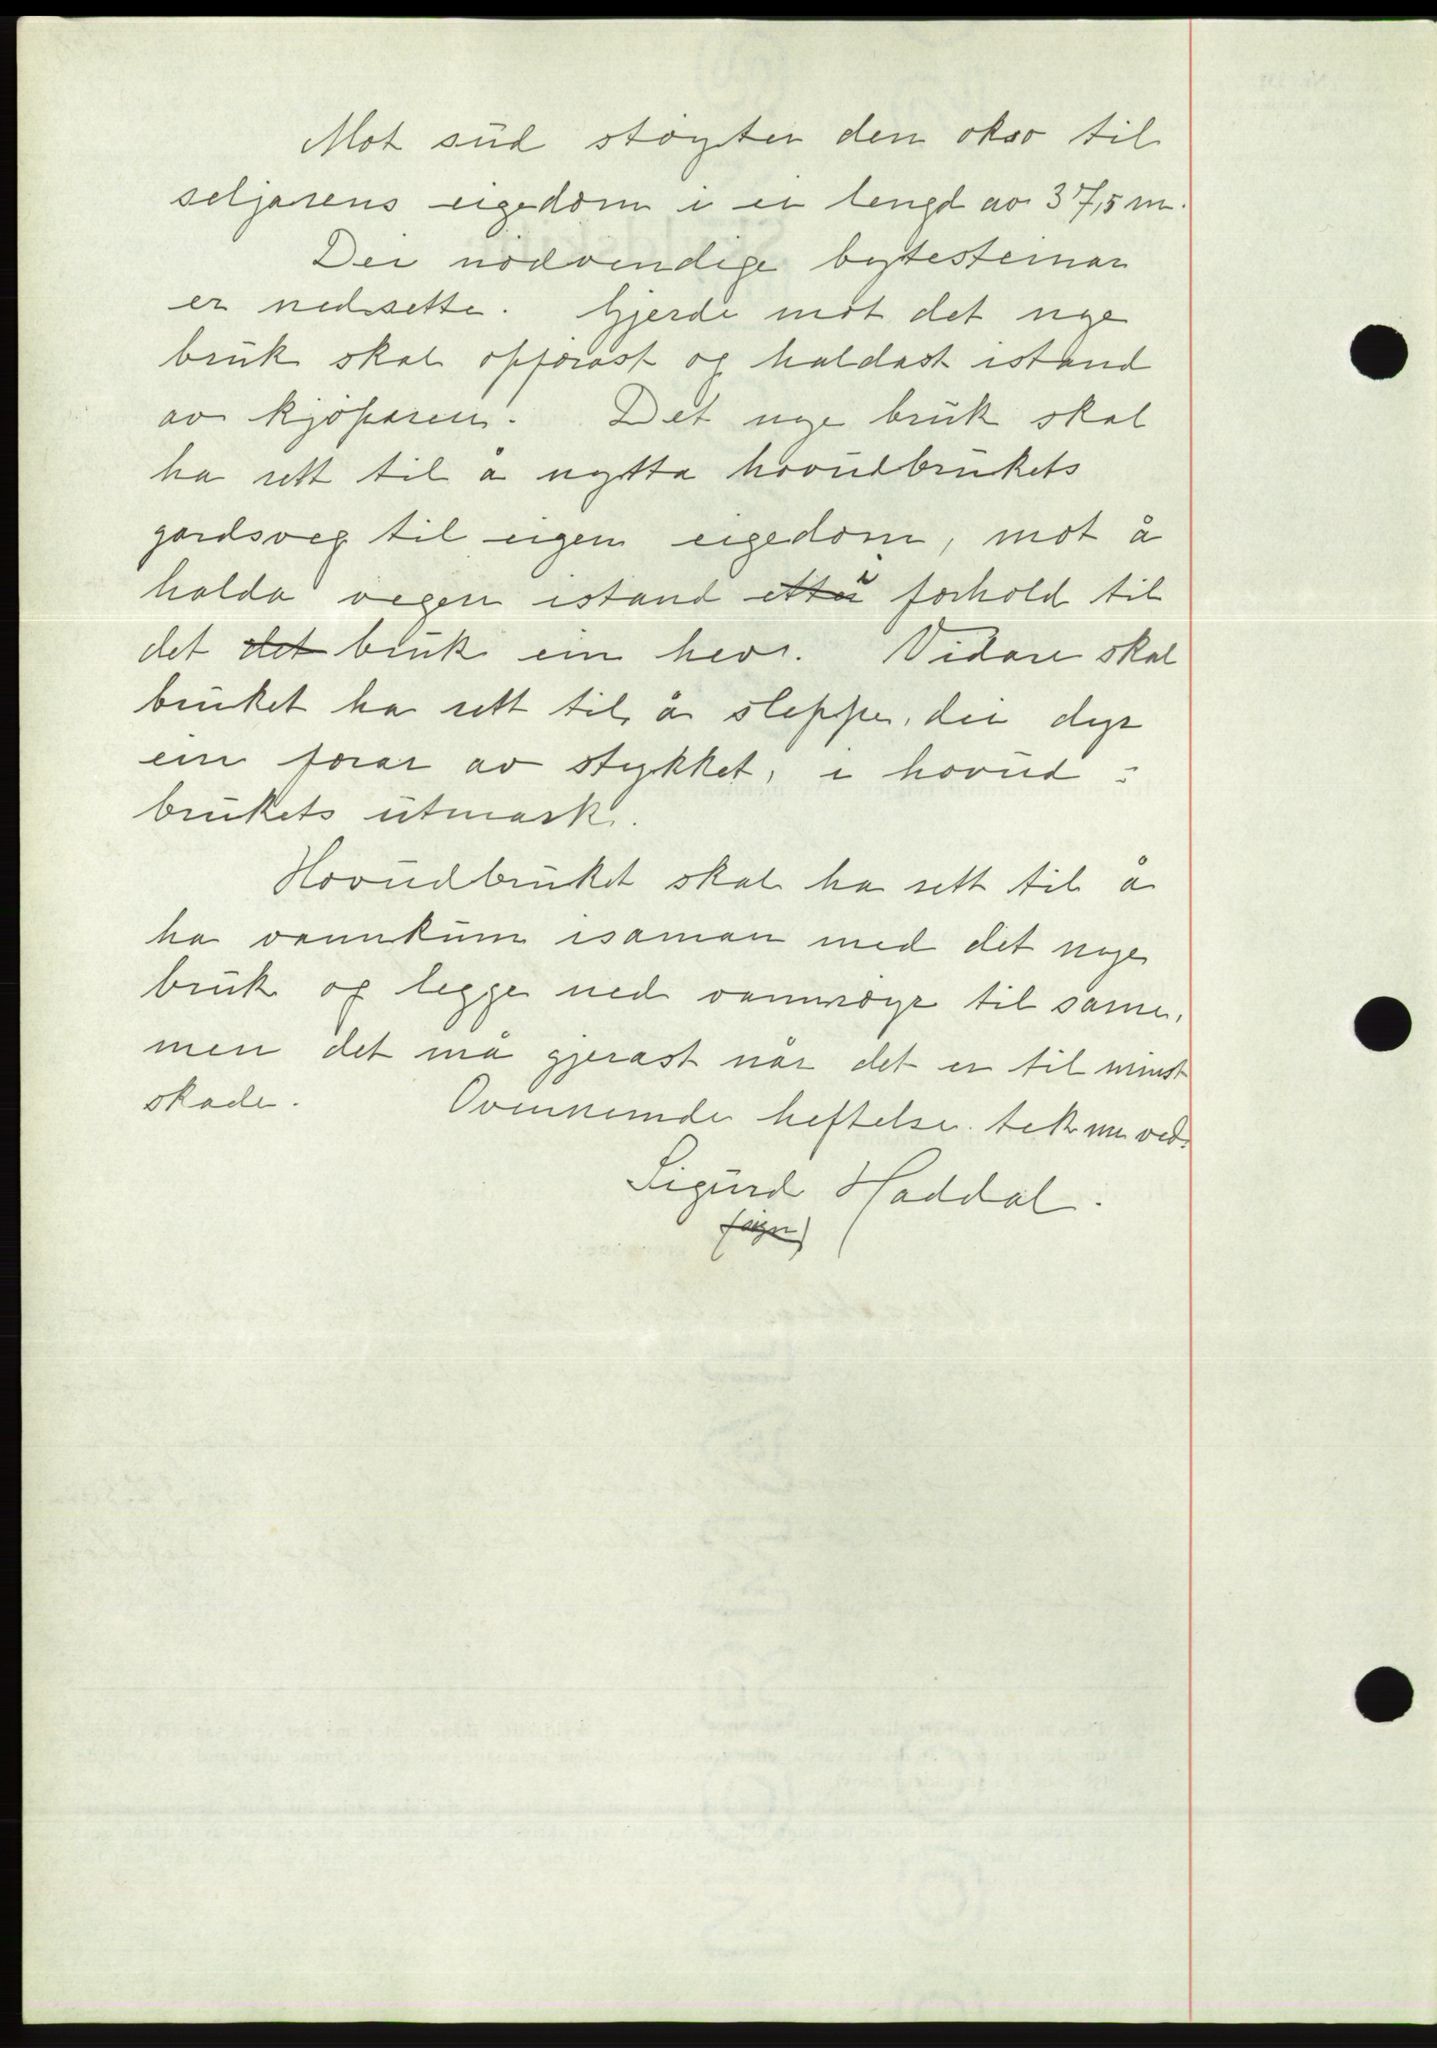 Mot süd støyter den okso til
seljarens eigedom i ei lengd av 37,5 m.
Dei nödvendige bytesteinar
er nedsette. Gjerde mot det nye
bruk skal oppførast og haldast istand
av kjöparen. Det nye bruk skal
ha rett til å nytta hovudbrukets
gardsveg til eigen eigedom, mot å
halda vegen istand etter i forhold til
det det bruk ein hevr. Vidare skal
bruket ha rett til å sleppe, dei dyr
ein forar av stykket, i hovud=
brukets utmark.
Hovudbruket skal ha rett til å
ha vannkum isaman med det nye
bruk og legge ned vannröyr til same,
men det må gjerast når det er til minst
skade. Ovennemde heftelse tek me ved.
Sigurd Haddal.
(sign)